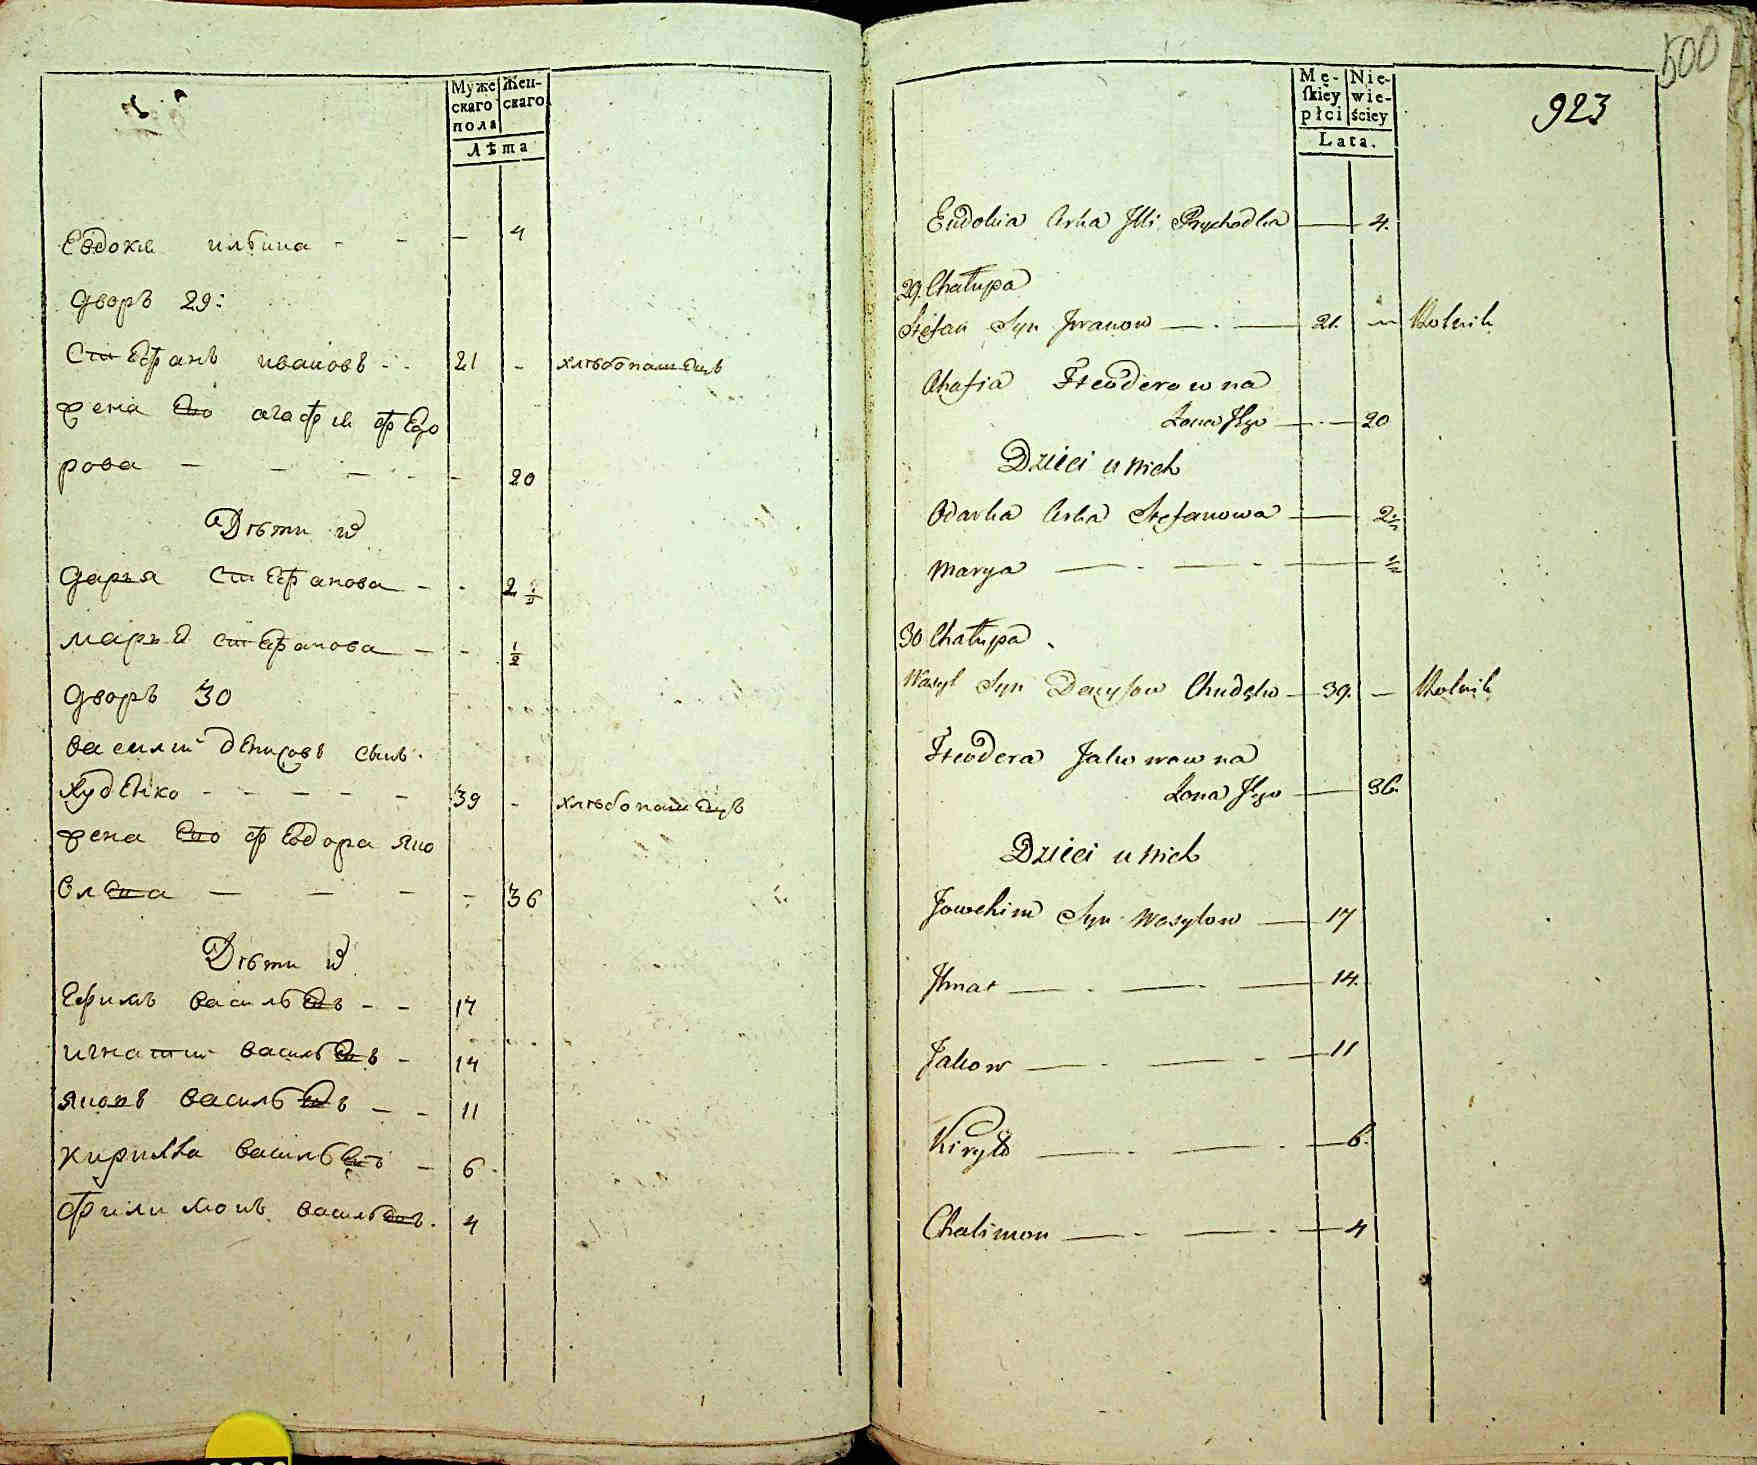 Муже
скаго
пола
Жен-
скаго
Лѣта
Евдокия илбина - - - 4
дворъ 29:
Стефанъ ивановъ - - 21 - хлѣбопашецъ
жена его агафия федо
рова - - - - - 20
Дѣти их
дарья стефанова - - 2 1/2
марья стефанова - - 1/2
дворъ 30
василий денисовъ сынъ
худенко - - - - - 39 - хлѣбопашецъ
жена его федора яко
влева - - - - 36
Дѣти их
Ефимъ василбевъ - - 17
игнатий василбевъ - 14
яковъ василбевъ - - 11
кирилла василбевъ - 6
филимонъ василбевъ. 4
500
923
Mę-
skiey
płci
Nie-
wie-
ściey
Lata.
Eudokia Corka Illi Przychodka — 4.
29. Chałupa
Stefan Syn Jwanow — . — 21. — Rolnik
Ahafia Fteoderowna
Zona Jego — . — 20
Dzieci u nich
Odarka Corka Stefanowa — 2 1/2
Marya — . — . — 1/2
30 Chałuppa
Wasyl Syn Denysow Chudeko — 39. — Rolnik
Fteodera Jakowowna
Zona Jego — 36.
Dzieci u nich
Jowchim Syn Wasylow — 17
Jhnat — . — . — 14.
Jakow — . — . — 11
Kiryło — . — . — 6.
Chalimon — . — . — 4